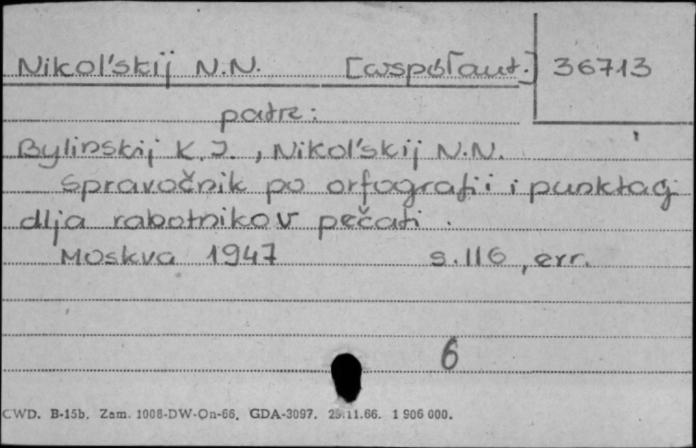 Nikol'skij N.N. [współaut.] 36713
patrz:
Bylinskij K.I., Nikol'skij N.N.
Spravočnik po orfografii i punktacj
dlja rabotnikov pečati.
Moskva 1947 s.116, err.
6
CWD. B-15b. Zam. 1008-DW-On-66. GDA-3097. 25.11.66. 1 906 000.